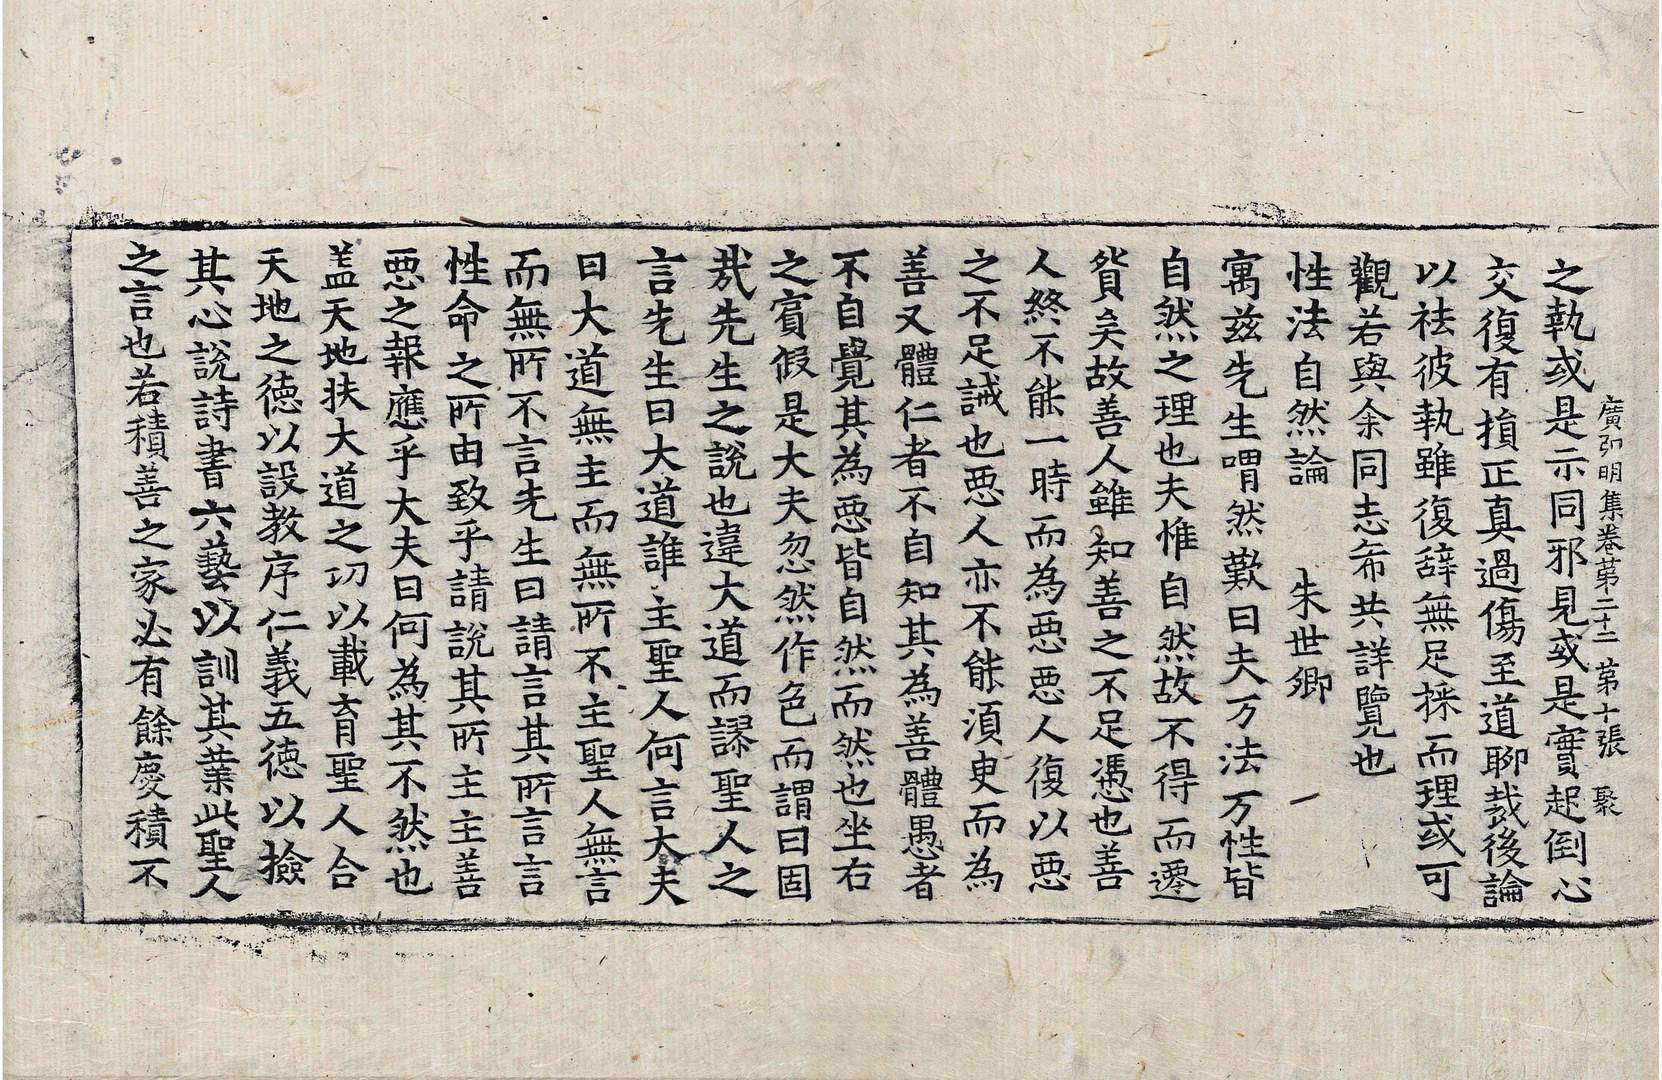 廣弘明集卷第二十二 第十張 聚
之執或是示同邪見或是實起倒心
交復有損正真過傷至道聊裁後論
以祛彼執雖復辞無足採而理或可
觀若與余同志希共詳覽也
性法自然論 朱世卿
寓茲先生喟然歎曰夫万法万性皆
自然之理也夫惟自然故不得而遷
貿矣故善人雖知善之不足憑也善
人終不能一時而為惡惡人復以惡
之不足誡也惡人亦不能須臾而為
善又體仁者不自知其為善體愚者
不自覺其為惡皆自然而然也坐右
之賓假是大夫忽然作色而謂曰固
哉先生之說也違大道而謬聖人之
言先生曰大道誰主聖人何言大夫
曰大道無主而無所不主聖人無言
而無所不言先生曰請言其所言言
性命之所由致乎請說其所主主善
惡之報應乎大夫曰何為其不然也
盖天地扶大道之功以載育聖人合
天地之德以設教序仁義五德以撿
其心說詩書六藝以訓其業此聖人
之言也若積善之家必有餘慶積不